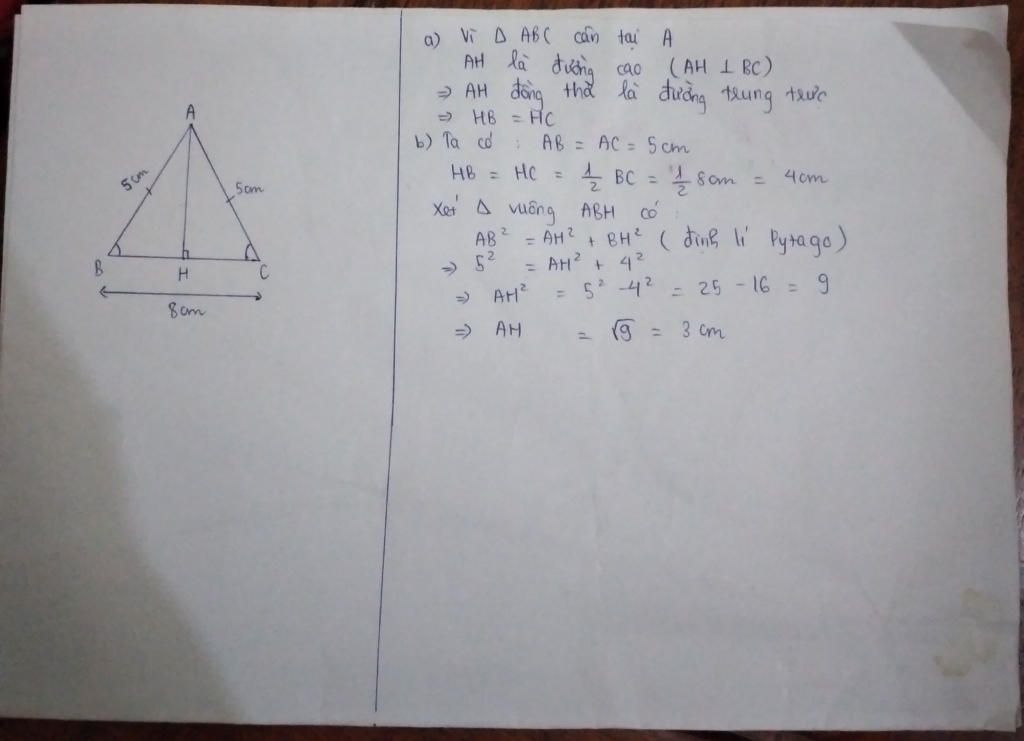 A
5cm
5cm
B
H
C
8cm
a) Vì Δ ABC cân tại A
AH là đường cao (AH ⊥ BC)
⇒ AH đồng thời là đường trung trực
⇒ HB = HC
b) Ta có : AB = AC = 5cm
HB = HC = 1/2 BC = 1/2 8cm = 4cm
Xét Δ vuông ABH có :
AB² = AH² + BH² ( định lí Pytago )
⇒ 5² = AH² + 4²
⇒ AH² = 5² - 4² = 25 - 16 = 9
⇒ AH = √9 = 3 cm